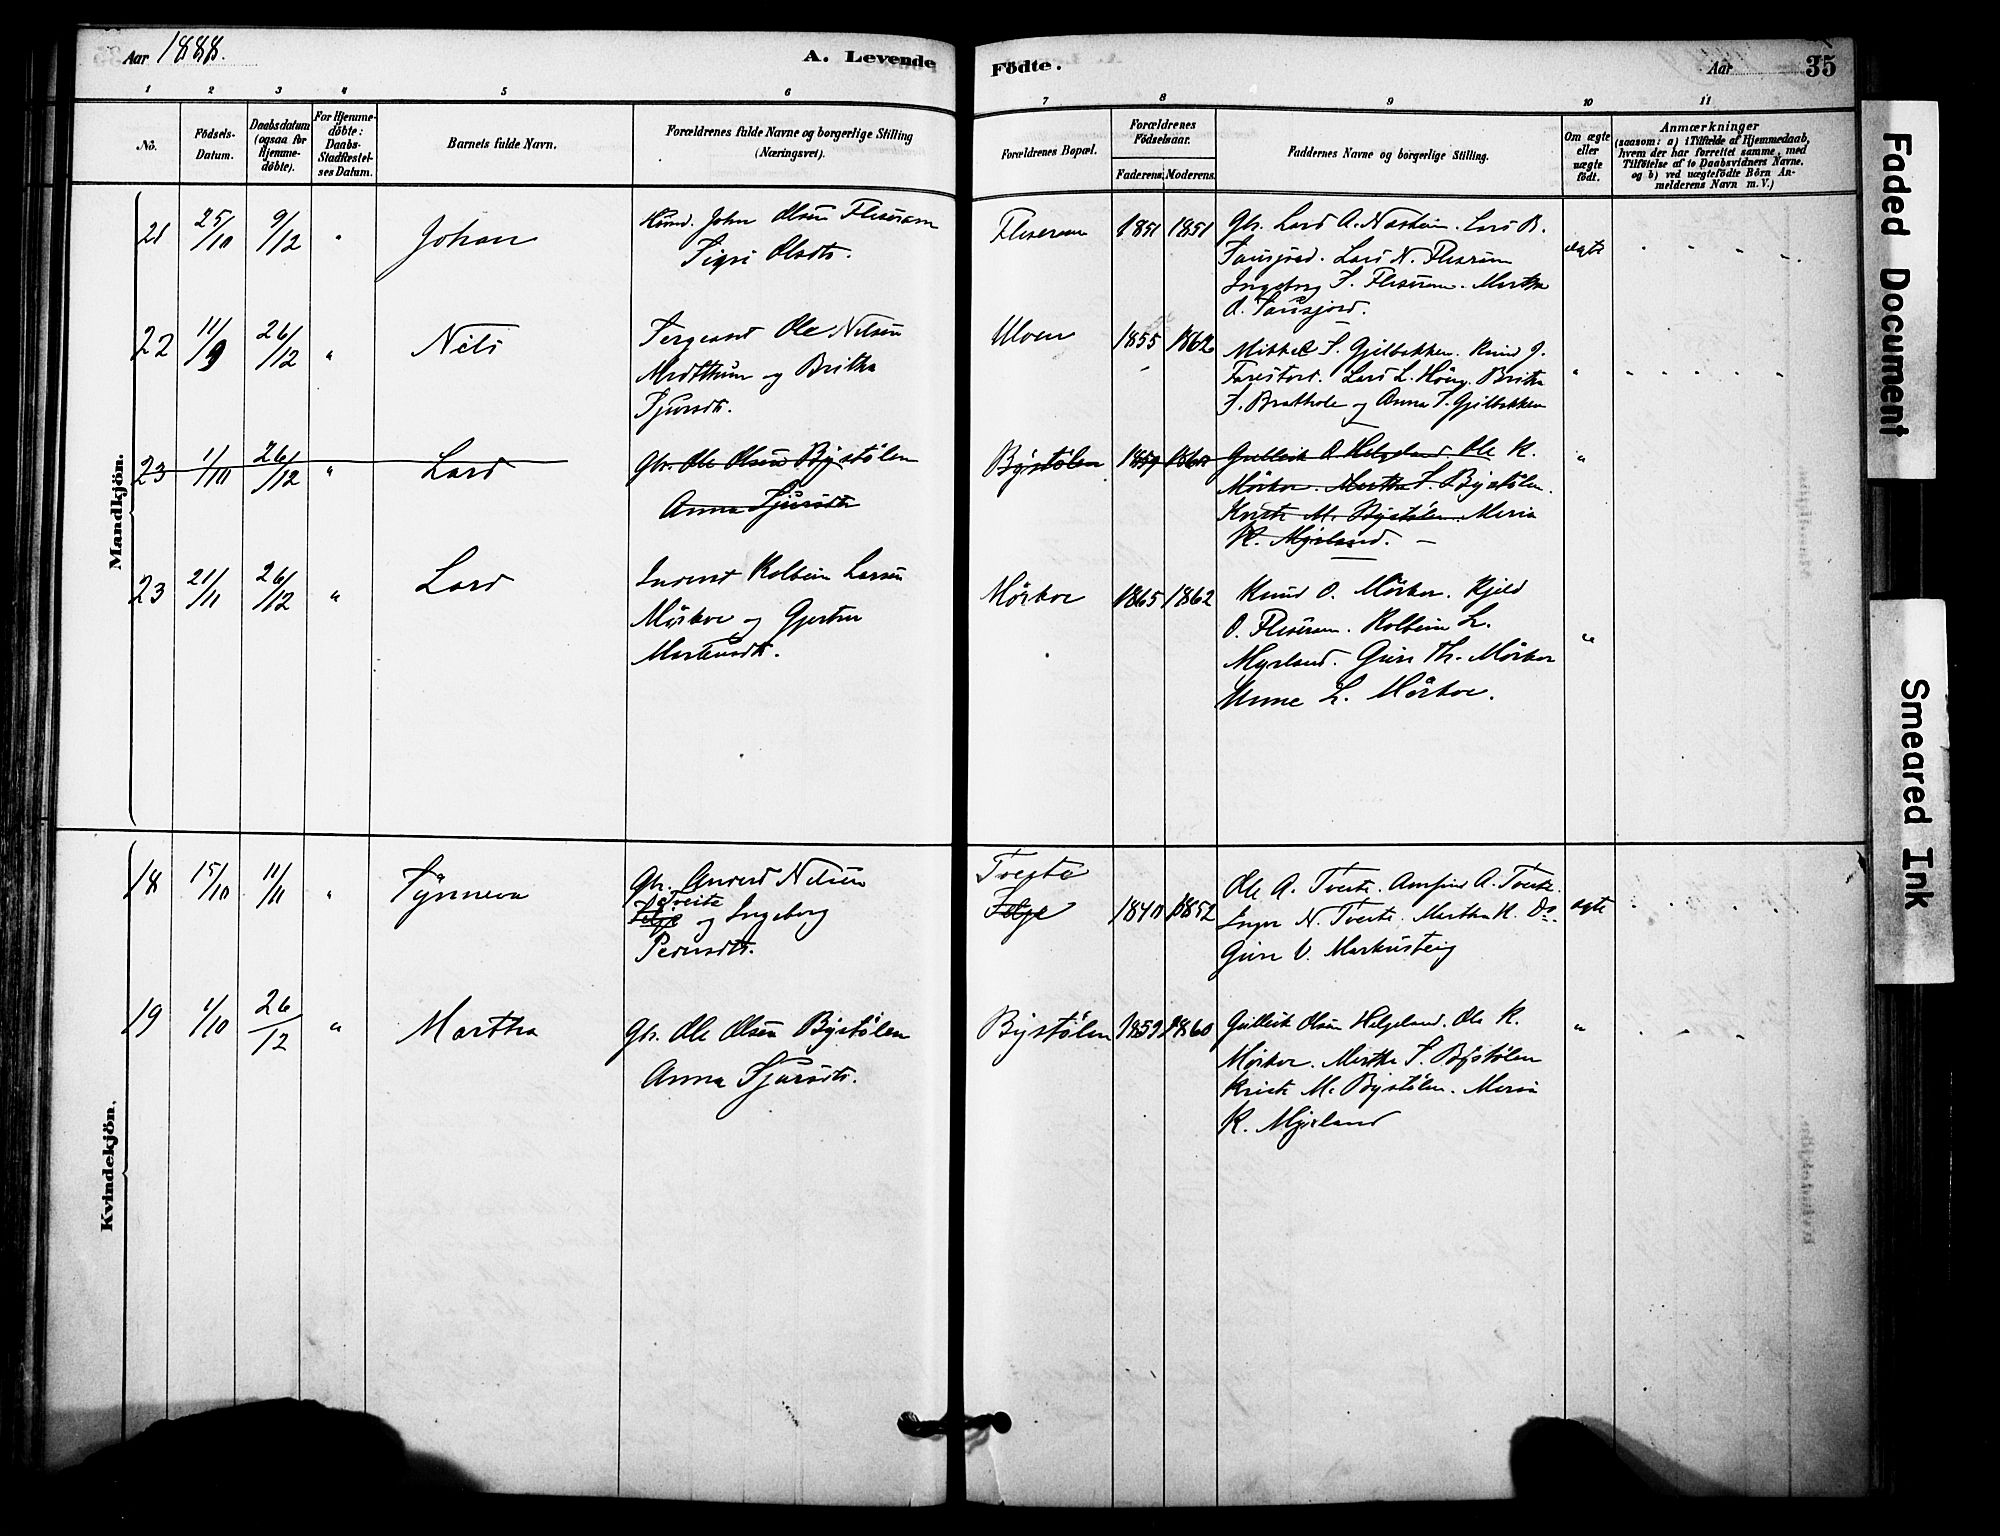 Aar 1888.
A. Levende
Födte.
Aar
35
1 2 3 4 5 6 7 8 9 10 11
No.
Födsels-
Datum.
Daabsdatum
(ogsaa for
Hjemme-
döbte).
For Hjemme-
döbte:
Daabs-
Stadfæstel-
ses Datum.
Barnets fulde Navn.
Forældrenes fulde Navne og borgerlige Stilling
(Næringsvei).
Forældrenes Bopæl.
Forældrenes
Födselsaar.
Faderens. Moderens.
Faddernes Navne og borgerlige Stilling.
Om ægte
eller
uægte
födt.
Anmærkninger
(saasom: a) i Tilfælde af Hjemmedaab,
hvem der har forrettet samme, med
Tilföielse af to Daabsvidners Navne.
og b) ved uægtefödte Börn An-
melderens Navn m.V.)
Mandkjön.
21 25/10 9/12 "
Johan
Huusd. John Olsen Fliseram
Sigri Olsdtr.
Fliseram
1851 1851
Gbr. Lars A. Nasheim. Lars B.
Lars N. Fliseram
Ingeborg S. Fliseram. Martha
O.
ægte
22 11/9 26/12 "
Nils
Sergeant Ole Nilsen
og Britha
Sjursdtr.
Ulven
1855 1862
Mikkel S. Gjelbakken. Knud J.
Lars L. Höug. Britha
S. og Anna S. Gjelbakken
"
23 1/10 26/12 "
Lars
Gbr. Ole Olsen Bystölen
Anna Sjursdtr
Bystölen
1859 1860
Gulleik O. Helgeland. Ole K.
Mörkve. Martha S. Bystölen.
M. Bystölen. Maria
K. Myrland. -
"
23 21/11 26/12 "
Lars
Inderst Kolbein Larsen
Mörkve og Gjertru
Mörkve
1865 1862
Knud O. Mörkve. Kjeld
O. Fliseram. Kolbein L.
Myrland. Guri Th. Mörkve
L. Mörkve.
"
Kvindekjön.
18 15/10 11/11 "
Synneva
Gbr. Anders Nilsen
Tveite
og Ingeborg
Pedersdtr.
Tveite
1840 1852
Ole A. Tveite. Arnfind A. Tveite.
Inger N. Tveite. Martha K. Do.
Guri V. Markusteig
ægte
19 1/10 26/12 "
Martha
Gbr. Ole Olsen Bystölen
Anna Sjursdtr.
Bystölen
1859 1860
Gulleik Olsen Helgeland. Ole K.
Mörkve. Martha S. Bystölen
M. Bystölen. Maria
K. Myrland
"
Faded Document
Smeared Ink